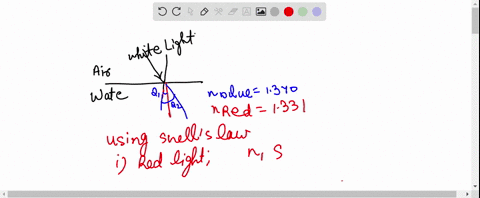 white Light
Air
Wate
θ1 θ2
nblue = 1.340
nRed = 1.331
using snell's law
i) Red light; n, S